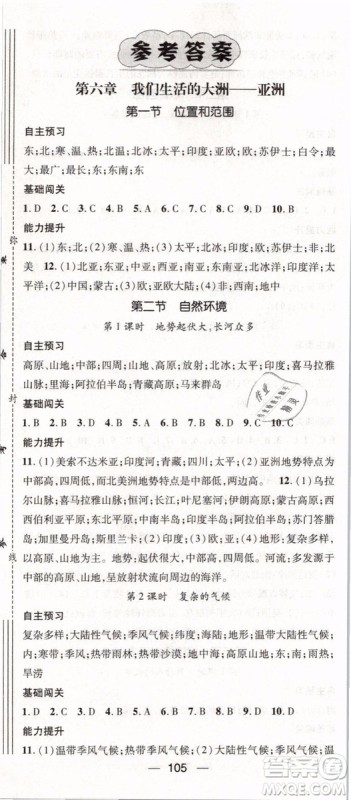 参考答案
第六章 我们生活的大洲——亚洲
第一节 位置和范围
自主预习
东;北;寒、温、热;北温;太平;印度;亚欧;欧;苏伊士;白令;最
大;最广;最长;东;东南;东
基础闯关
1. D 2. C 3. C 4. B 5. A 6. C 7. C 8. C 9. D 10. B
能力提升
11. (1)东;北;(2)寒;温;热 (3)太平;北冰;印度;欧;苏伊士;非;北
美 12. (1)北亚;东亚;南亚;东南亚 (2)北冰洋;印度洋;太平
洋 (3)中国;蒙古 (4)印度 (5)欧;亚欧大陆 (6)非;北美
第二节 自然环境
第1课时 地势起伏大,长河众多
自主预习
高原、山地;中部;四周;山地;高原;放射;北冰;太平;印度;喜马拉雅
山脉;里海;阿拉伯半岛;青藏高原;马来群岛
基础闯关
1. B 2. C 3. A 4. B 5. A 6. B 7. D 8. D 9. C 10. C
能力提升
11. (1)美索不达米亚;印度河;青藏;四周 (2)亚洲地势特点为
中部高四周低,而北美洲地势特点为东西高中部低。 12. (1)里
海;喜马拉雅山脉;恒河;长江;叶尼塞河;伊朗高原;青藏高原;蒙古
高原;西西伯利亚平原;东欧平原;印度半岛;阿拉伯半岛;苏门答腊
岛;加里曼丹岛;斯里兰卡 (2)亚洲以高原、山地为主。地势中部
高、四周低。地面起伏很大,高低悬殊。河流:多发源于中部的高
原、山地,呈放射状流向周边的海洋。
第2课时 复杂的气候
自主预习
复杂多样;大陆性气候;季风气候;纬度;海陆;地形;温带大陆性气
候;寒带;温带;热带;温带沙漠;高山;季风气候;季风;东;南;雨热;
旱涝
基础闯关
1. D 2. C 3. B 4. C 5. D 6. D 7. D 8. D 9. C 10. D
能力提升
11. (1)温带季风气候;热带季风气候 (2)温带大陆性气候;面积
105